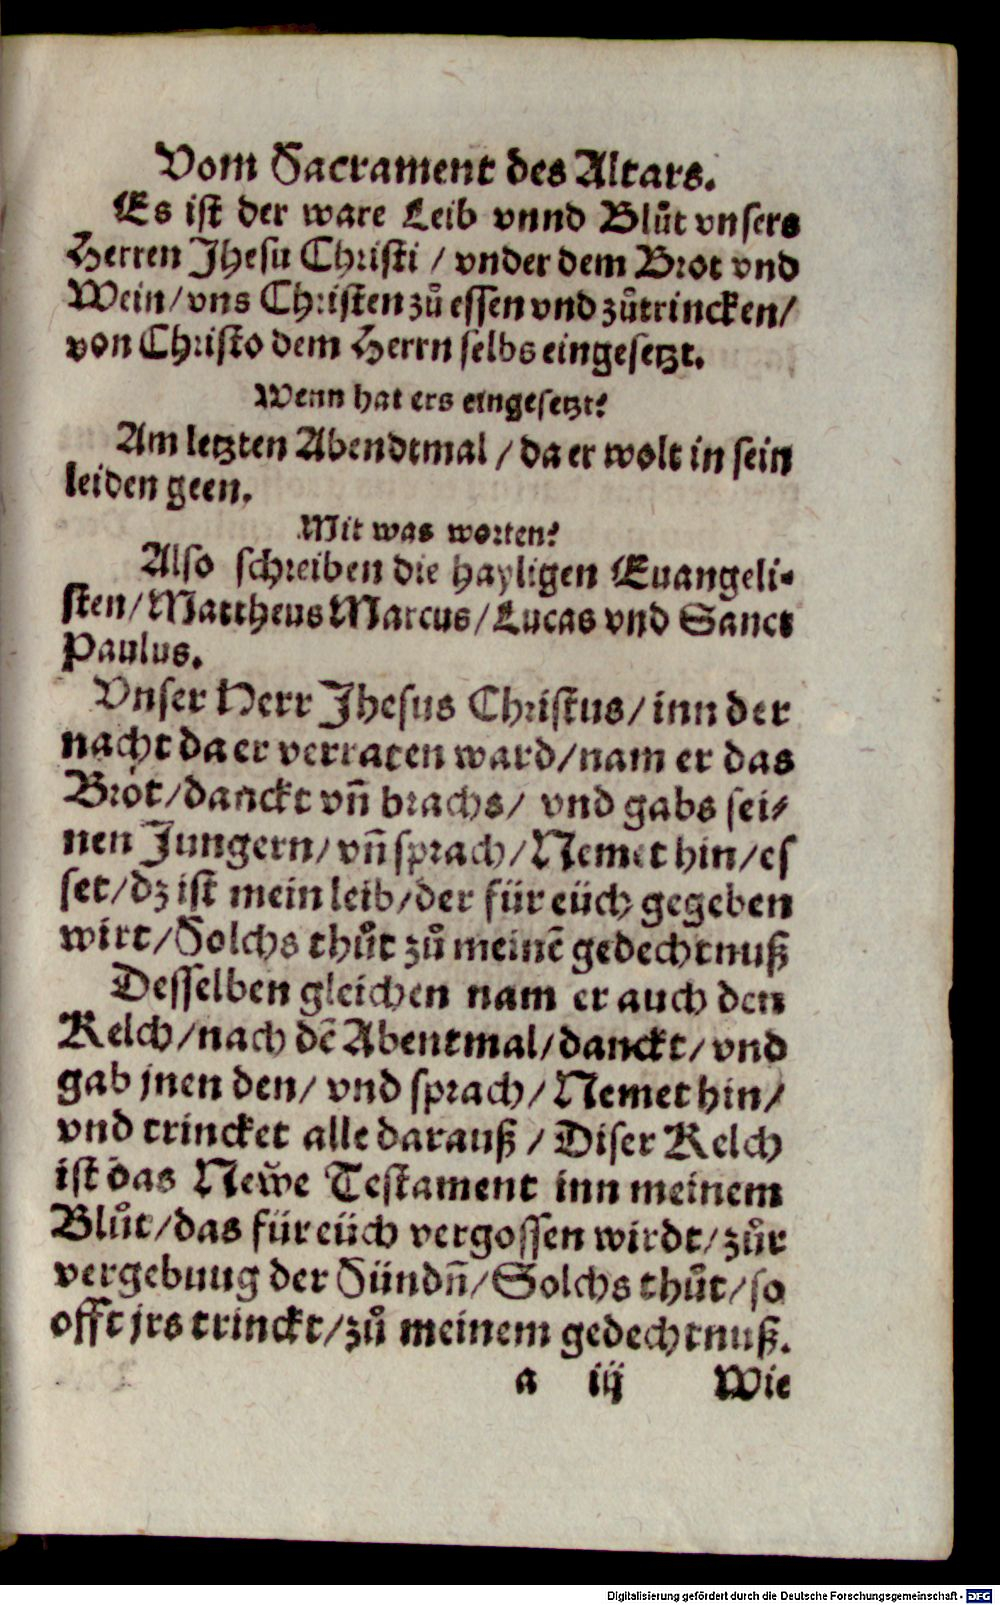 Vom Sacrament des Altars.
Es ist der ware Leib vnnd Blůt vnsers
Herren Jhesu Christi / vnder dem Brot vnd
Wein / vns Christen zů essen vnd zů trincken /
von Christo dem Herrn selbs eingesetzt.
Wenn hat ers eingesetzt?
Am letzten Abendtmal / da er wolt in sein
leiden geen.
Mit was worten?
Also schreiben die hayligen Euangeli-
sten / Mattheus Marcus / Lucas vnd Sanct
Paulus.
Vnser Herr Jhesus Christus / inn der
nacht da er verraten ward / nam er das
Brot / danckt vn̄ brachs / vnd gabs sei-
nen Jungern / vn̄ sprach / Nemet hin / es
set / dz ist mein leib / der für eüch gegeben
wirt / Solchs thůt zů meinē gedechtnuß
Desselben gleichen nam er auch den
Kelch / nach dē Abentmal / danckt / vnd
gab jnen den / vnd sprach / Nemet hin /
vnd trincket alle darauß / Diser Kelch
ist das Newe Testament inn meinem
Blůt / das für eüch vergossen wirdt / zůr
vergebuug der Sündn̄ / Solchs thůt / so
offt jrs trinckt / zů meinem gedechtnuß.
a iij Wie
Digitalisierung gefördert durch die Deutsche Forschungsgemeinschaft - DFG